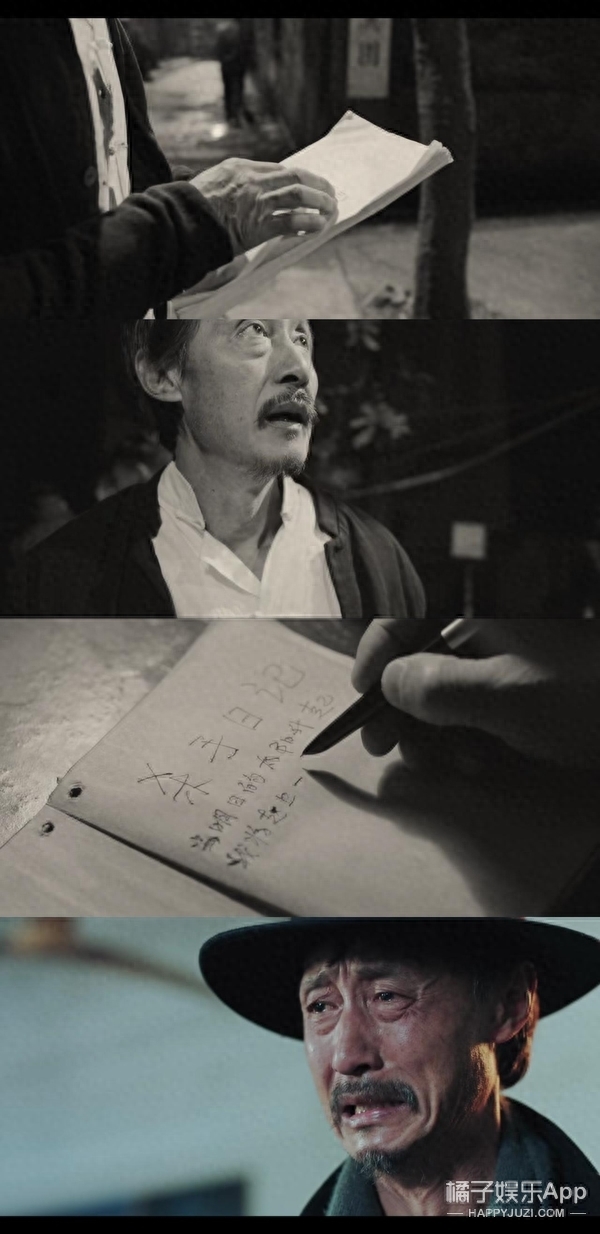 杀子日记
当明日的太阳升起
我将走上一
橘子娱乐App
HAPPYJUZI.COM